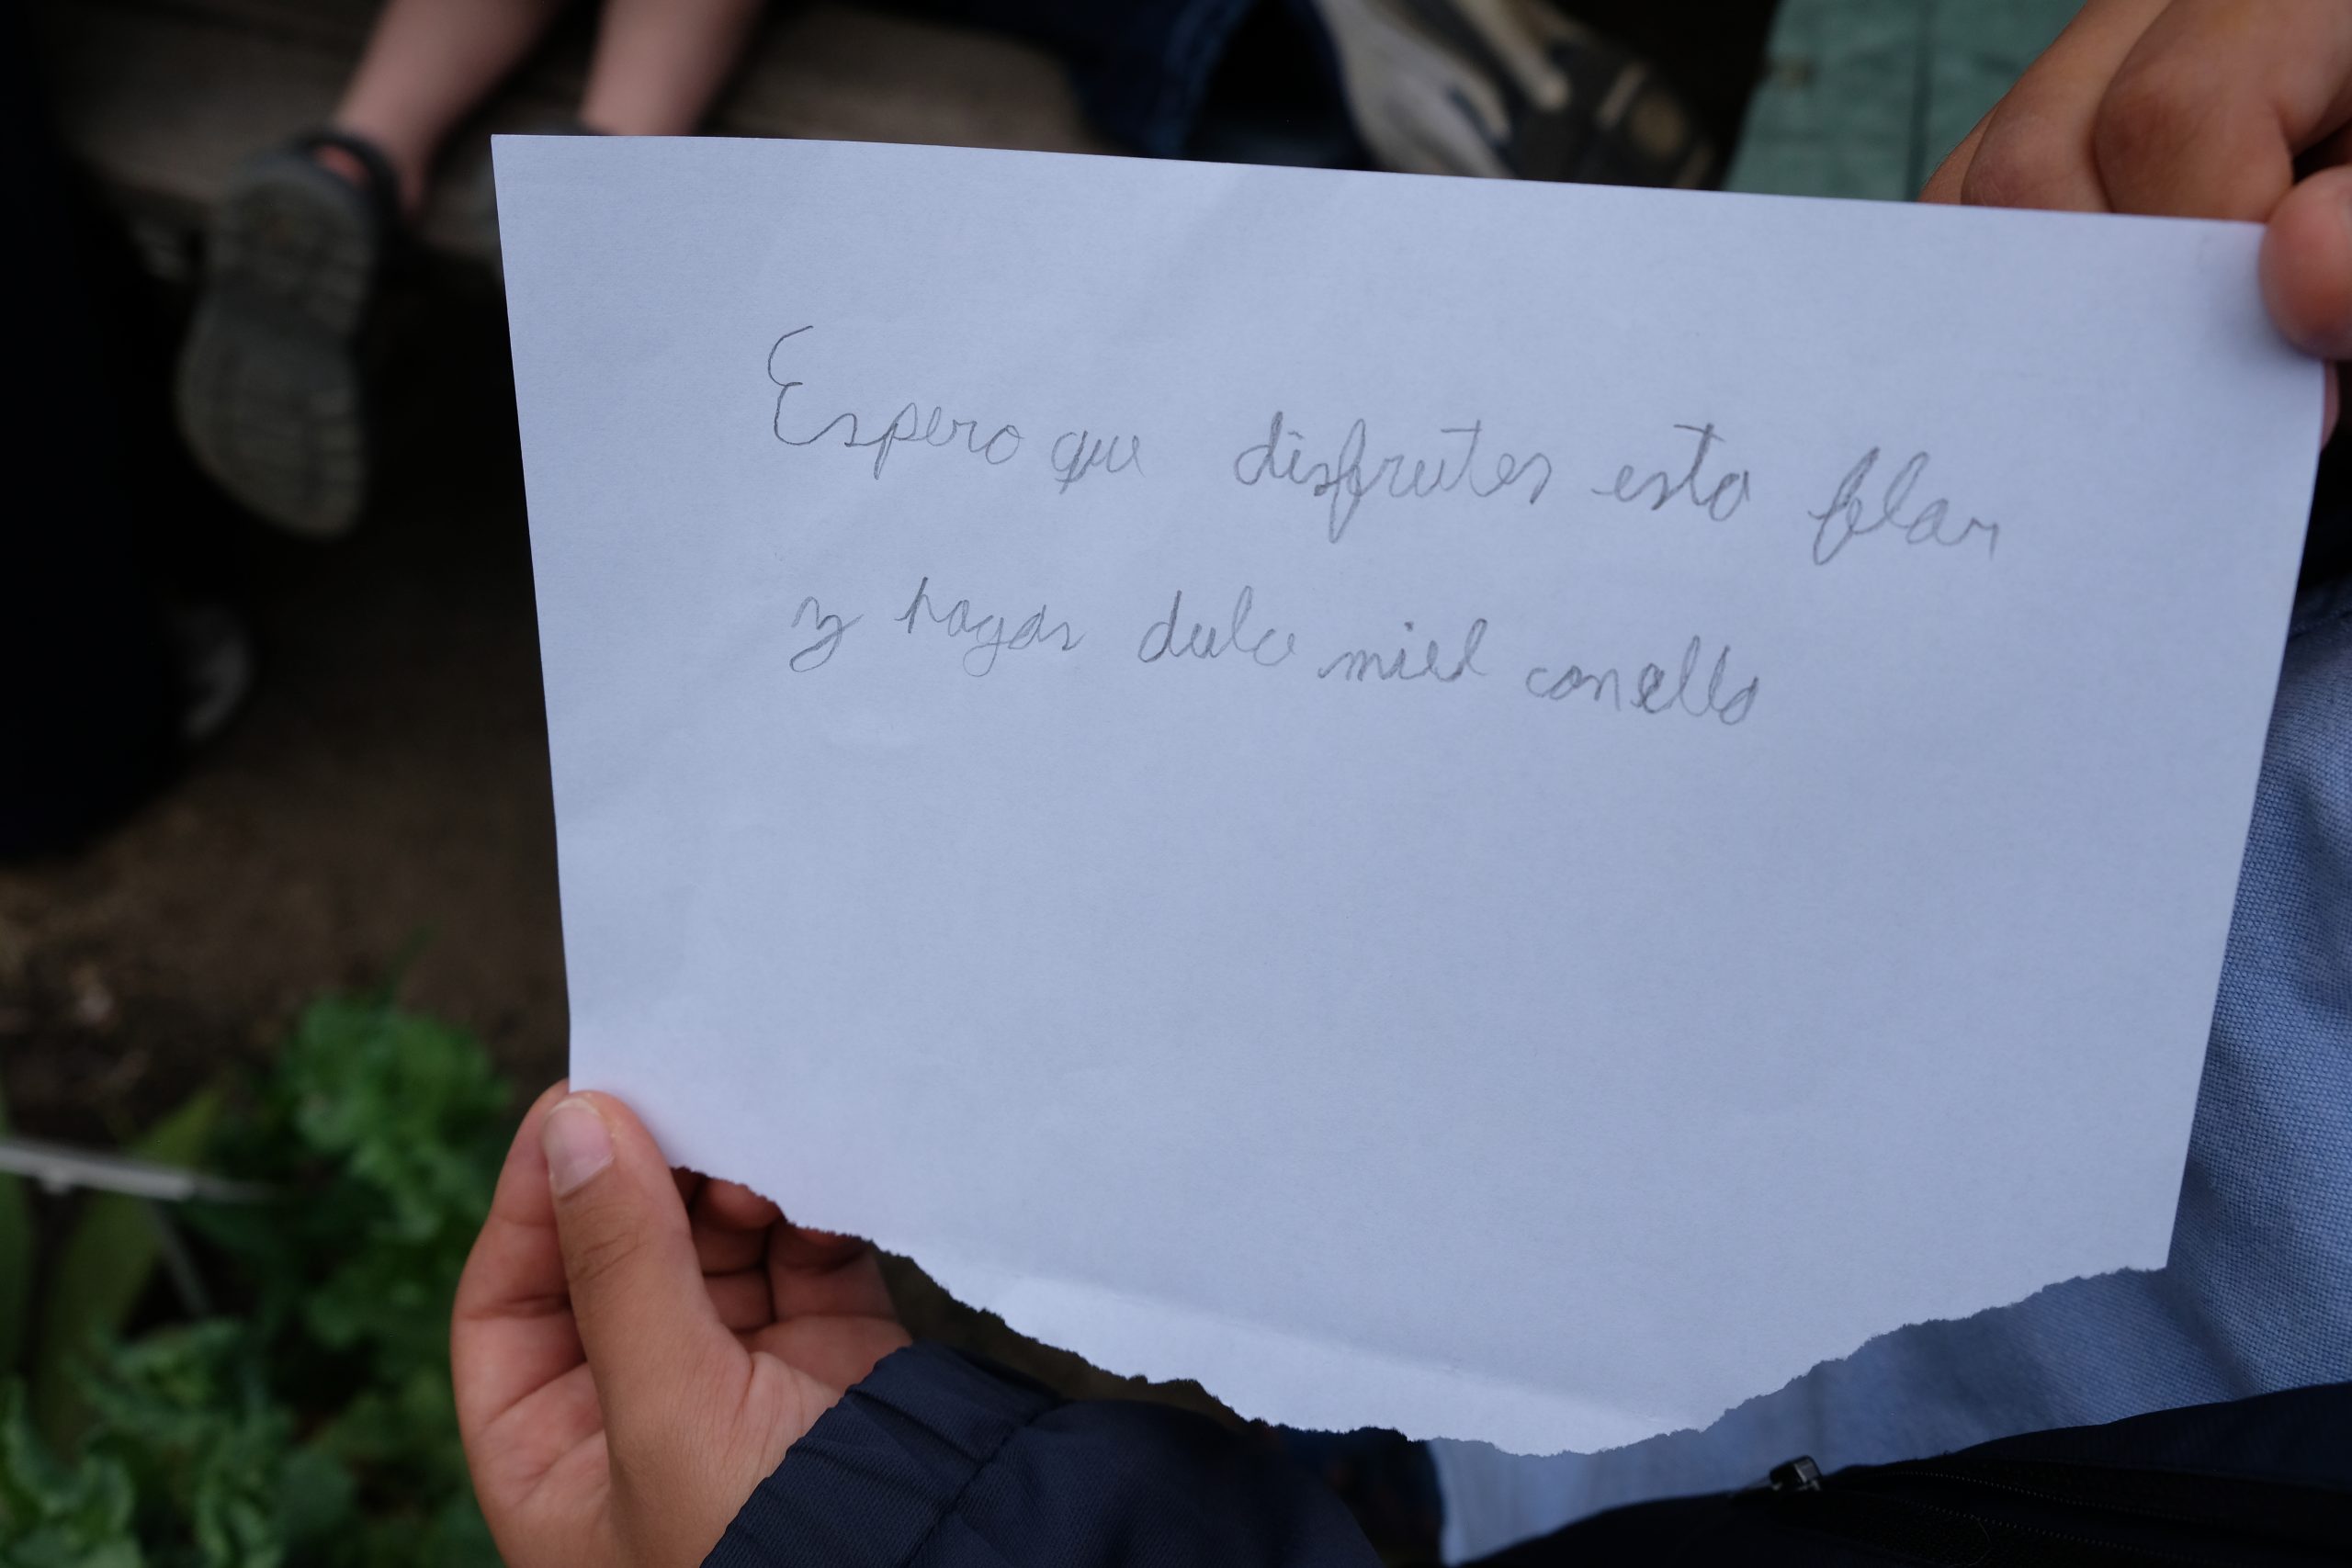 Espero que disfrutes esta flor
y hagas dulce miel con ella